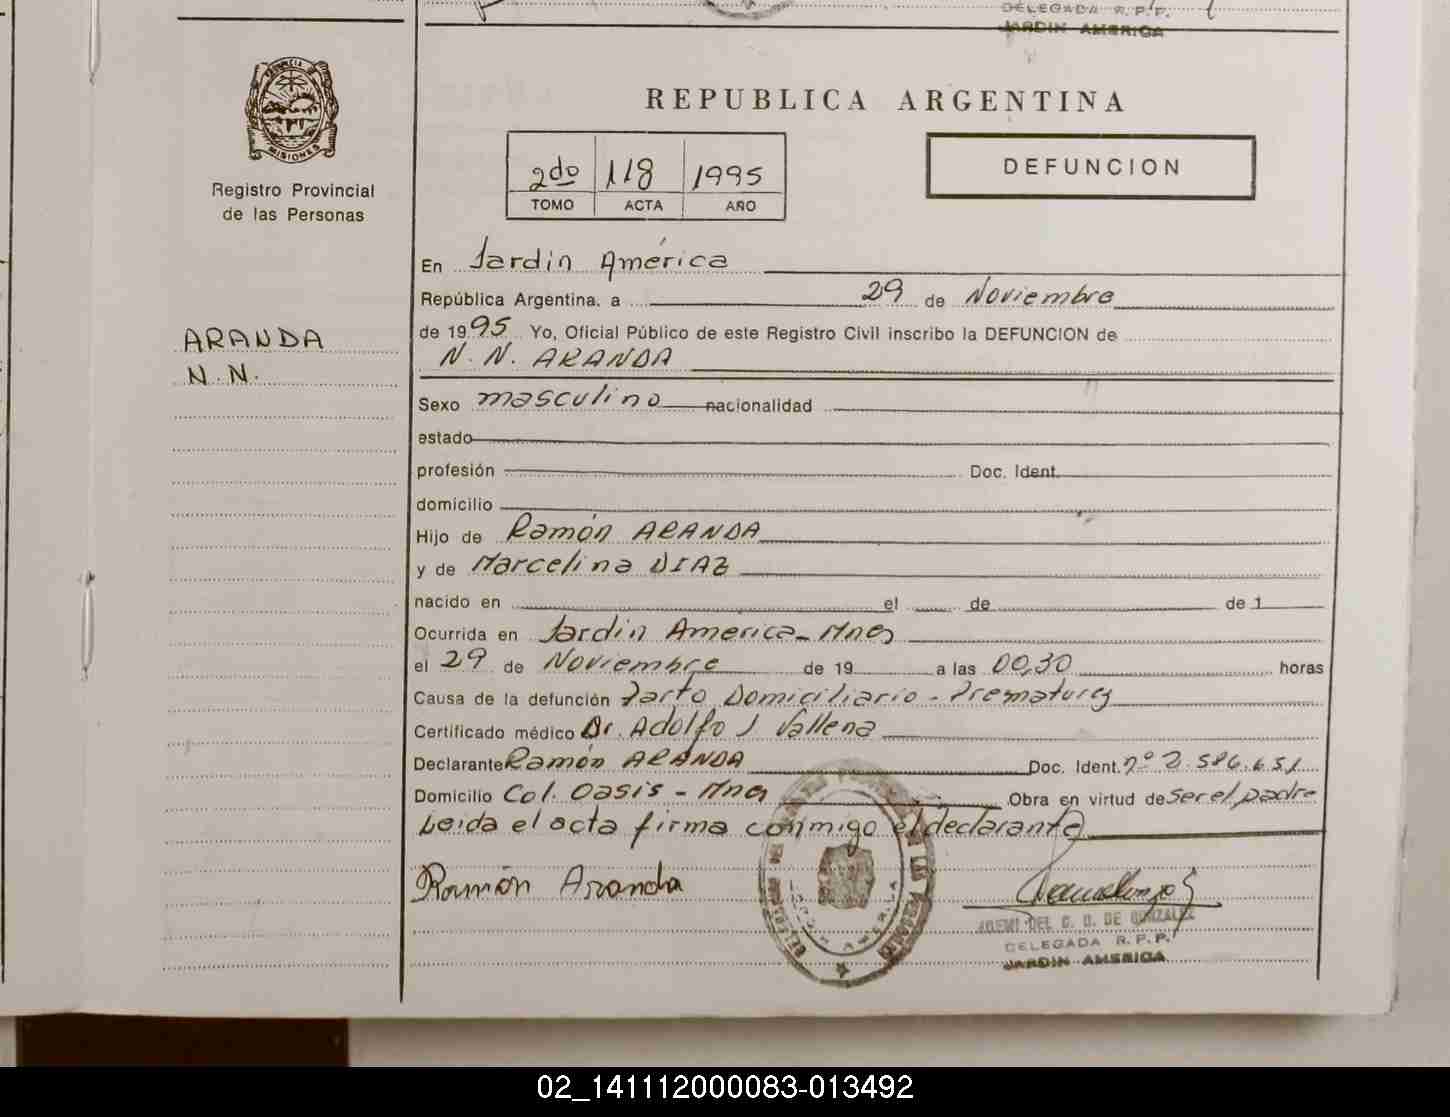 DELEGADA R.P.P.
JARDIN AMERICA
PROVINCIA DE
MISIONES
Registro Provincial
de las Personas
REPUBLICA ARGENTINA
2do 118 1995
TOMO ACTA AÑO
DEFUNCION
En Jardín América
República Argentina, a 29 de Noviembre
de 1995 Yo, Oficial Público de este Registro Civil inscribo la DEFUNCION de
N. N. ARANDA
ARANDA
N. N.
Sexo masculino nacionalidad
estado
profesión Doc. Ident.
domicilio
Hijo de Ramón ARANDA
y de Marcelina DIAZ
nacido en el de de 1
Ocurrida en Jardín America - Mnes
el 29 de Noviembre de 19 a las 00,30 horas
Causa de la defunción Parto Domiciliario - Prematurez
Certificado médico Dr. Adolfo J Vallena
Declarante Ramón ARANDA Doc. Ident. nº 2.586.651
Domicilio Col. Oasis - Mnes Obra en virtud de ser el padre
Leida el acta firma conmigo el declarante
Ramón Aranda
DEL C. D. DE GONZALEZ
DELEGADA R.P.P.
JARDIN AMERICA
02_141112000083-013492